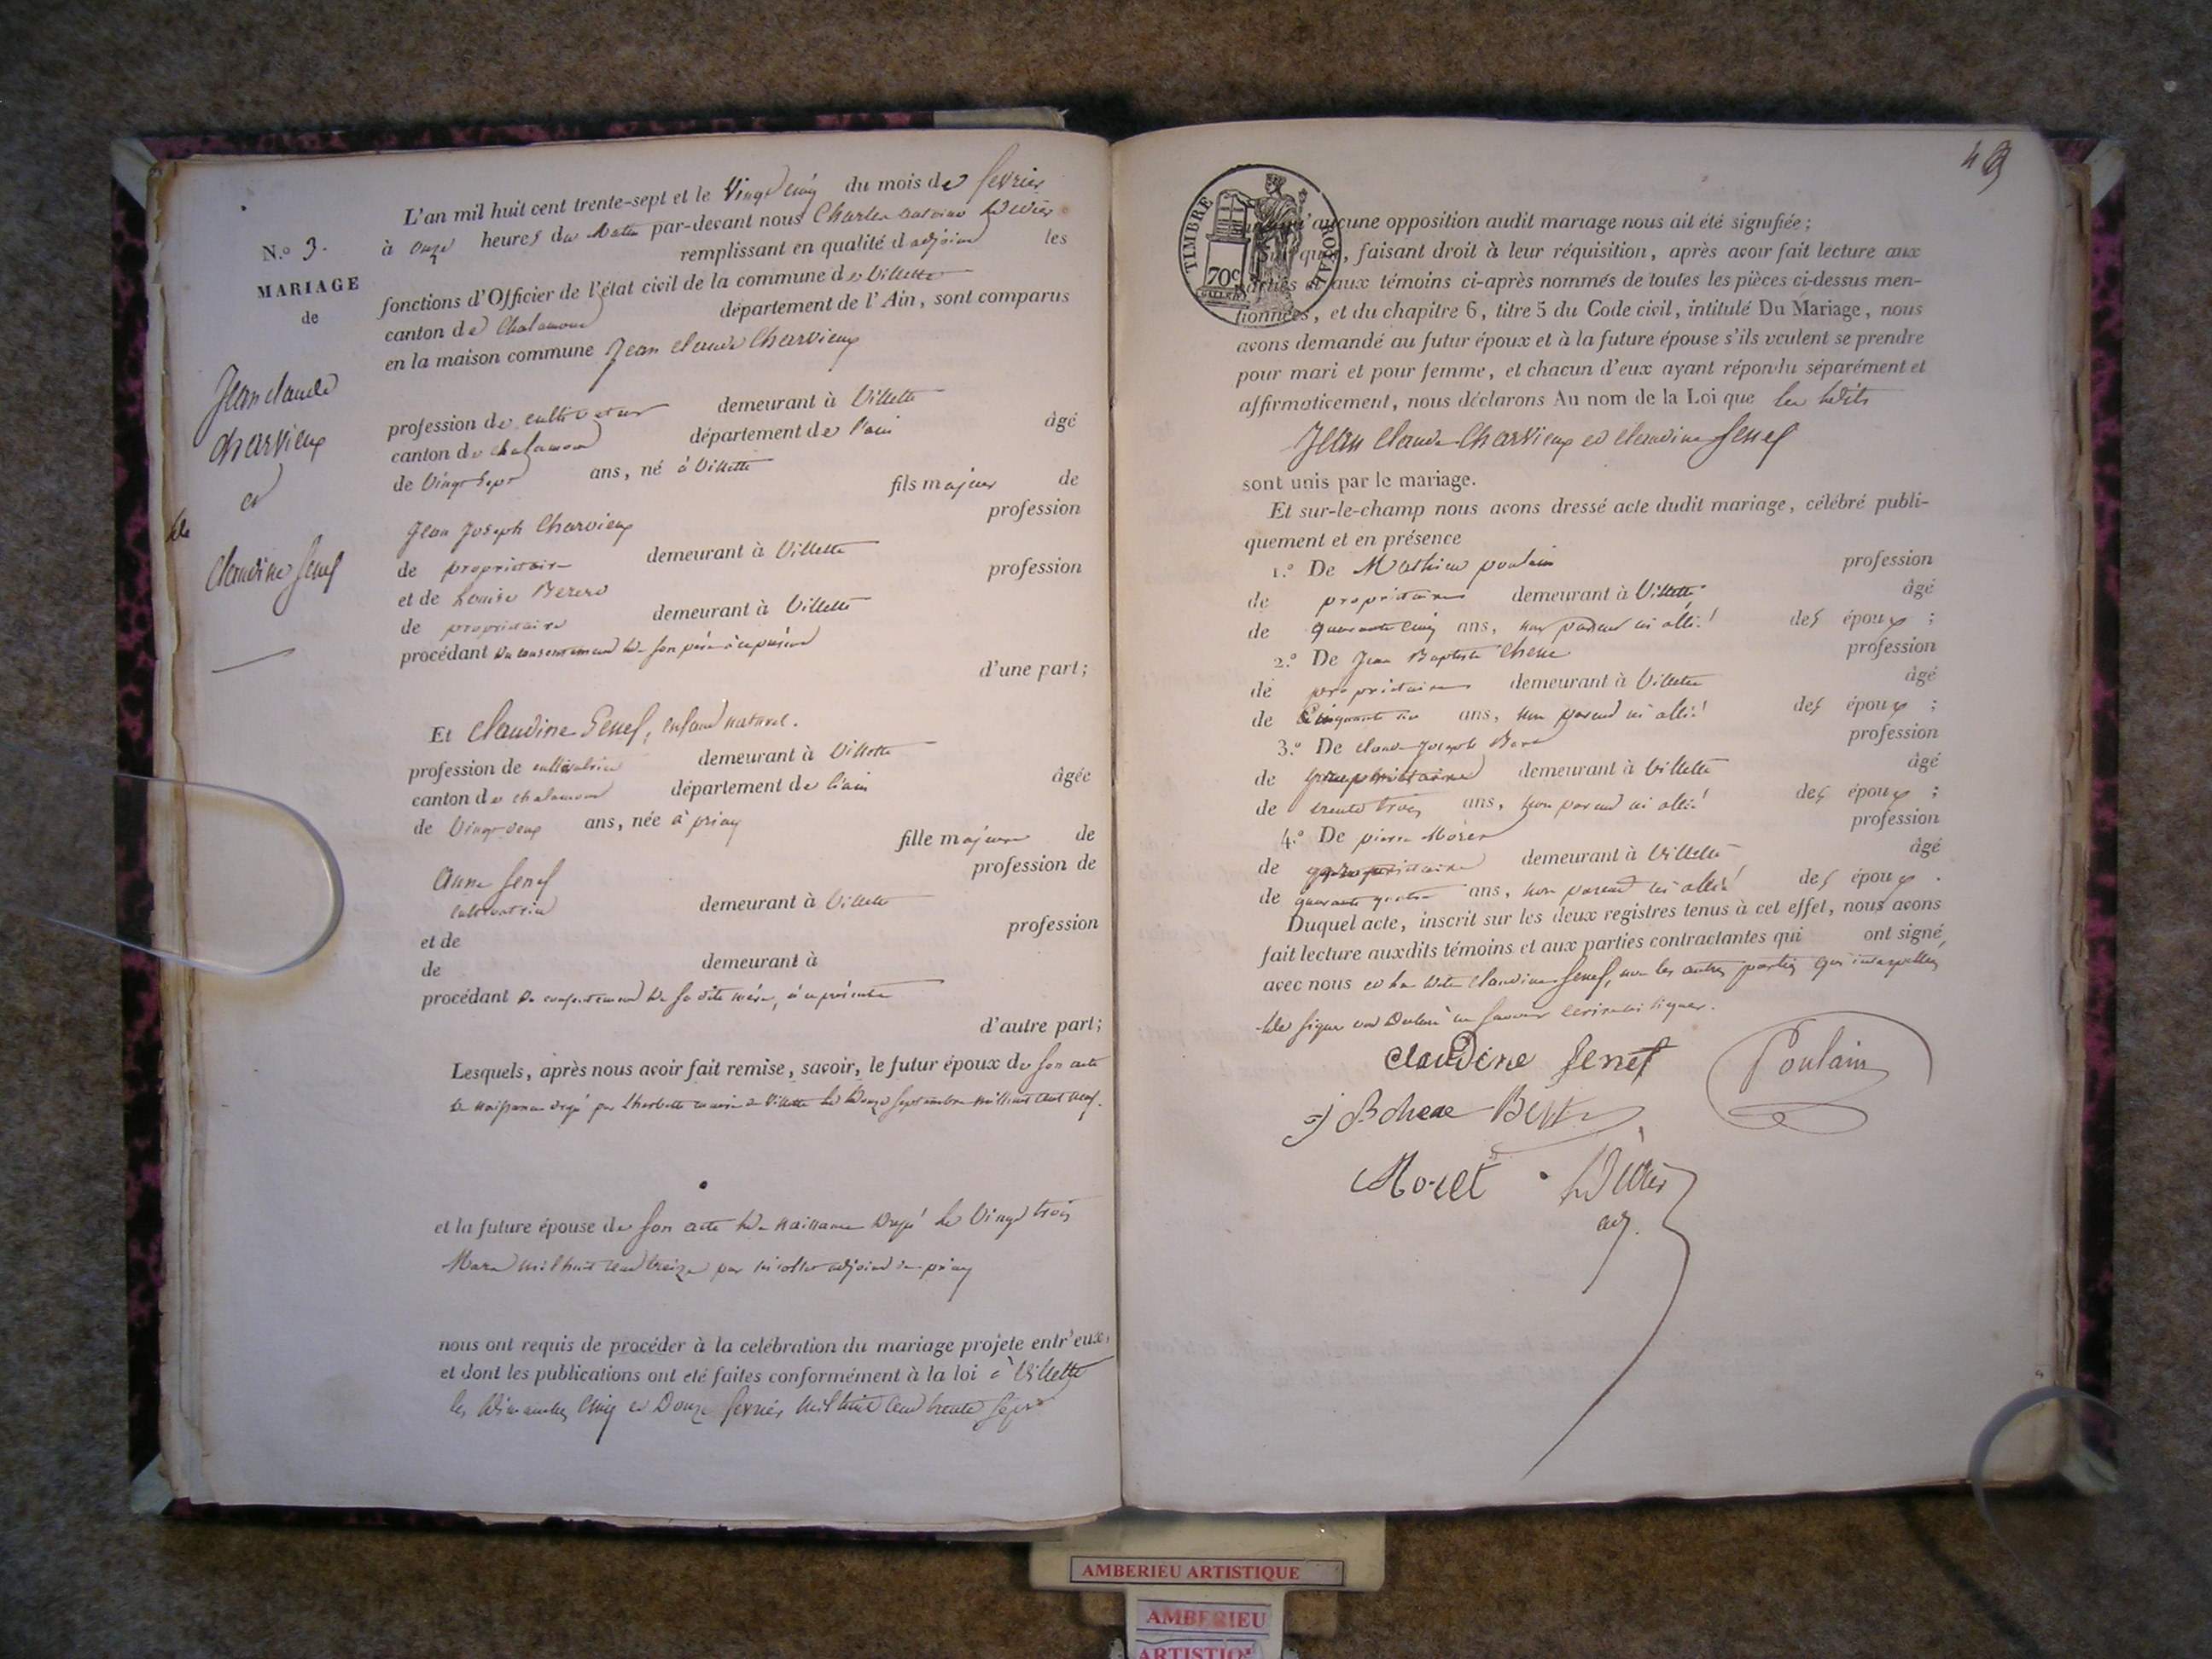 L'an mil huit cent trente-sept et le Vingt cinq du mois de fevrier
à onze heures du Matin par-devant nous Charles antoine Didier
remplissant en qualité d'adjoint les
fonctions d'Officier de l'état civil de la commune de Villette
canton de Chalamont département de l'Ain, sont comparus
en la maison commune Jean Claude Charvieux
profession de cultivateur demeurant à Villette
canton de chalamont département de l'ain âgé
de Vingt Sept ans, né à Villette
fils majeur de
Jean Joseph Charvieux profession
de proprietaire demeurant à Villette
et de Louise profession
de proprietaire demeurant à Villette
procédant du consentement de son père à ce présent
d'une part;
N.o 3.
MARIAGE
de
Jean claude
Charvieux
et
de
Claudine Senef
Et Claudine Senef, enfant naturel.
profession de cultivatrice demeurant à Villette
canton de chalamont département de l'ain âgée
de Vingt deux ans, née à priay
fille majeure de
Anne Senef profession de
cultivatrice demeurant à Villette
et de profession
de demeurant à
procédant du consentement de sa dite mère, à ce présente
d'autre part;
Lesquels, après nous avoir fait remise, savoir, le futur époux de son acte
de naissance dressé par maire de Villette le Douze Septembre mil huit cent neuf.
et la future épouse de son acte de naissance dressé le Vingt trois
Mars mil huit cent treize par adjoint de priay
nous ont requis de procéder à la celébration du mariage projeté entr'eux,
et dont les publications ont été faites conformément à la loi à Villette
les Dimanches Cinq et Douze fevrier mil huit cent trente sept
49
TIMBRE ROYAL
70c
qu'aucune opposition audit mariage nous ait été signifiée;
que, faisant droit à leur réquisition, après avoir fait lecture aux
parties et aux témoins ci-après nommés de toutes les pièces ci-dessus men-
tionnées, et du chapitre 6, titre 5 du Code civil, intitulé Du Mariage, nous
avons demandé au futur époux et à la future épouse s'ils veulent se prendre
pour mari et pour femme, et chacun d'eux ayant répondu séparément et
affirmativement, nous déclarons Au nom de la Loi que les dits
Jean Claude Charvieux et Claudine Senef
sont unis par le mariage.
Et sur-le-champ nous avons dressé acte dudit mariage, célébré publi-
quement et en présence
1.o De Mathieu poulain profession
de proprietaire demeurant à Villette âgé
de quarante cinq ans, non parent ni allié des époux ;
2.o De Jean Baptiste Chene profession
de proprietaire demeurant à Villette âgé
de Cinquante ans, non parent ni allié des époux ;
3.o De claude Joseph profession
de proprietaire demeurant à Villette âgé
de trente trois ans, non parent ni allié des époux ;
4.o De pierre Moret profession
de proprietaire demeurant à Villette âgé
de quarante quatre ans, non parent ni allié des époux .
Duquel acte, inscrit sur les deux registres tenus à cet effet, nous avons
fait lecture auxdits témoins et aux parties contractantes qui ont signé,
avec nous et la dite Claudine Senef, non les autres parties qui interpellés
de signer ont Declaré ne savoir écrire ni signer.
Claudine Senef Poulain
J B chene
Moret Didier
adj.
AMBERIEU ARTISTIQUE
AMBERIEU
ARTISTIQUE